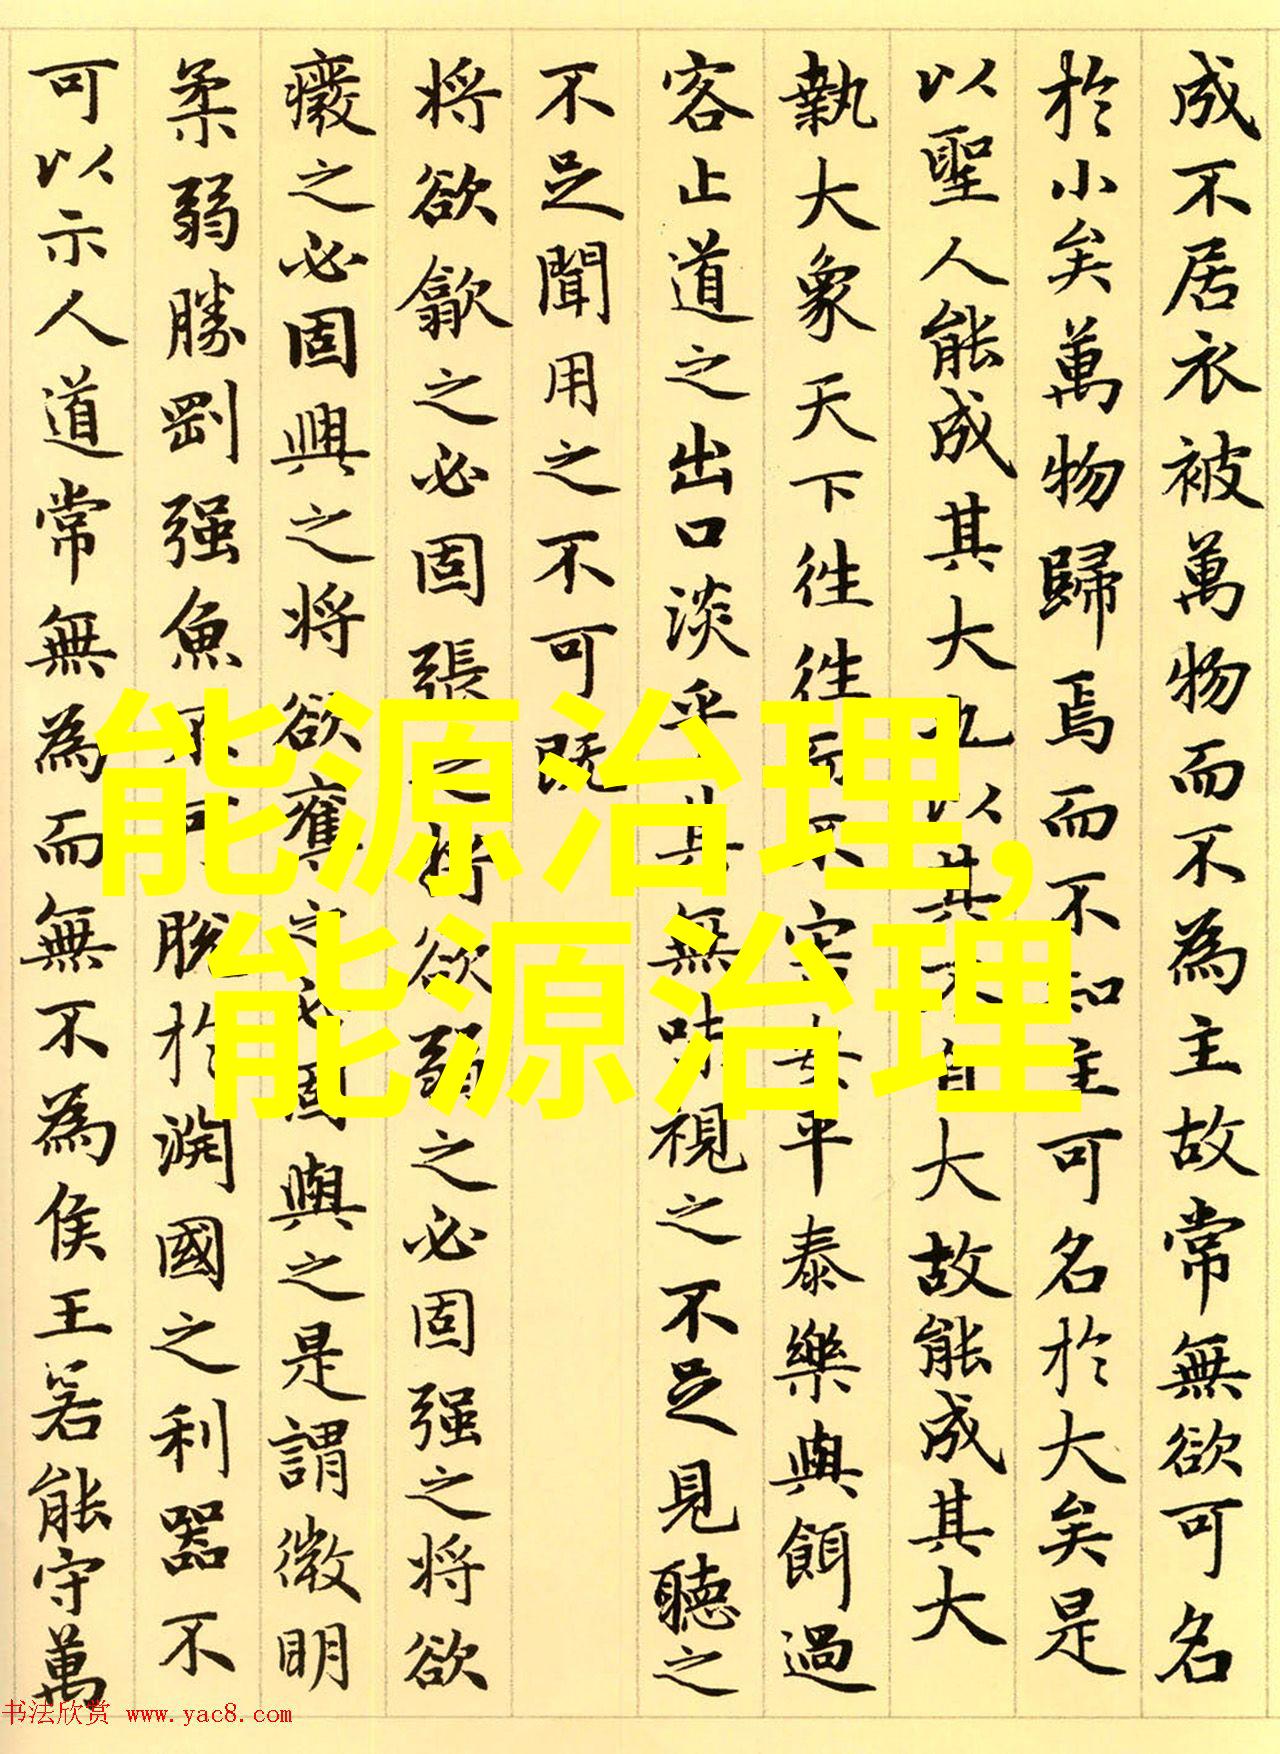 成不居衣被萬物而不為主故常無欲可名
於小矣萬物歸焉而不知主可名於大矣是
以聖人能成其大也以其不自大故能成其大
執大象天下往往而不害安平泰樂與餌過
客止道之出口淡乎其無味視之不足見聽之
不足聞用之不可既
将欲歙之必固張之将欲弱之必固强之将欲
癈之必固興之将欲奪之必固與之是謂微明
柔弱勝剛强魚不可脱於淵國之利器不
可以示人道常無為而無不為侯王若能守萬
能源治理,
能源治理
书法欣赏 www.yac8.com